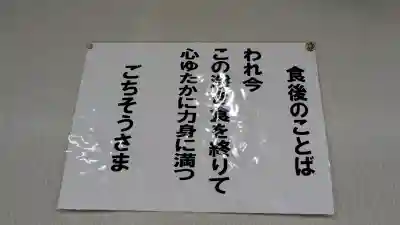 食後のことば
われ今
この清き食を終りて
心ゆたかに力身に満つ
ごちそうさま